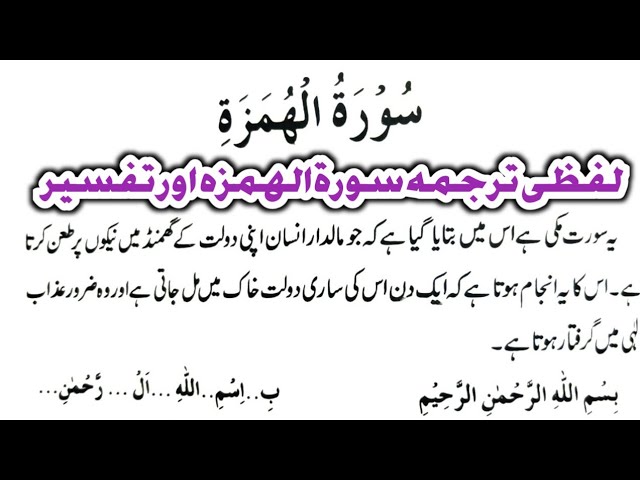 سُوْرَةُ الْهُمَزَةِ
لفظی ترجمہ سورۃ الھمزہ اور تفسیر
یہ سورت مکی ہے اس میں بتایا گیا ہے کہ جو مالدار انسان اپنی دولت کے گھمنڈ میں نیکوں پر طعن کرتا
ہے۔ اس کا یہ انجام ہوتا ہے کہ ایک دن اس کی ساری دولت خاک میں مل جاتی ہے اور وہ ضرور عذاب
لٰہی میں گرفتار ہوتا ہے۔
بِسْمِ اللّٰهِ الرَّحْمٰنِ الرَّحِيْمِ بِ..اِسْمِ..اللّٰهِ...اَلْ...رَّحْمٰنِ...